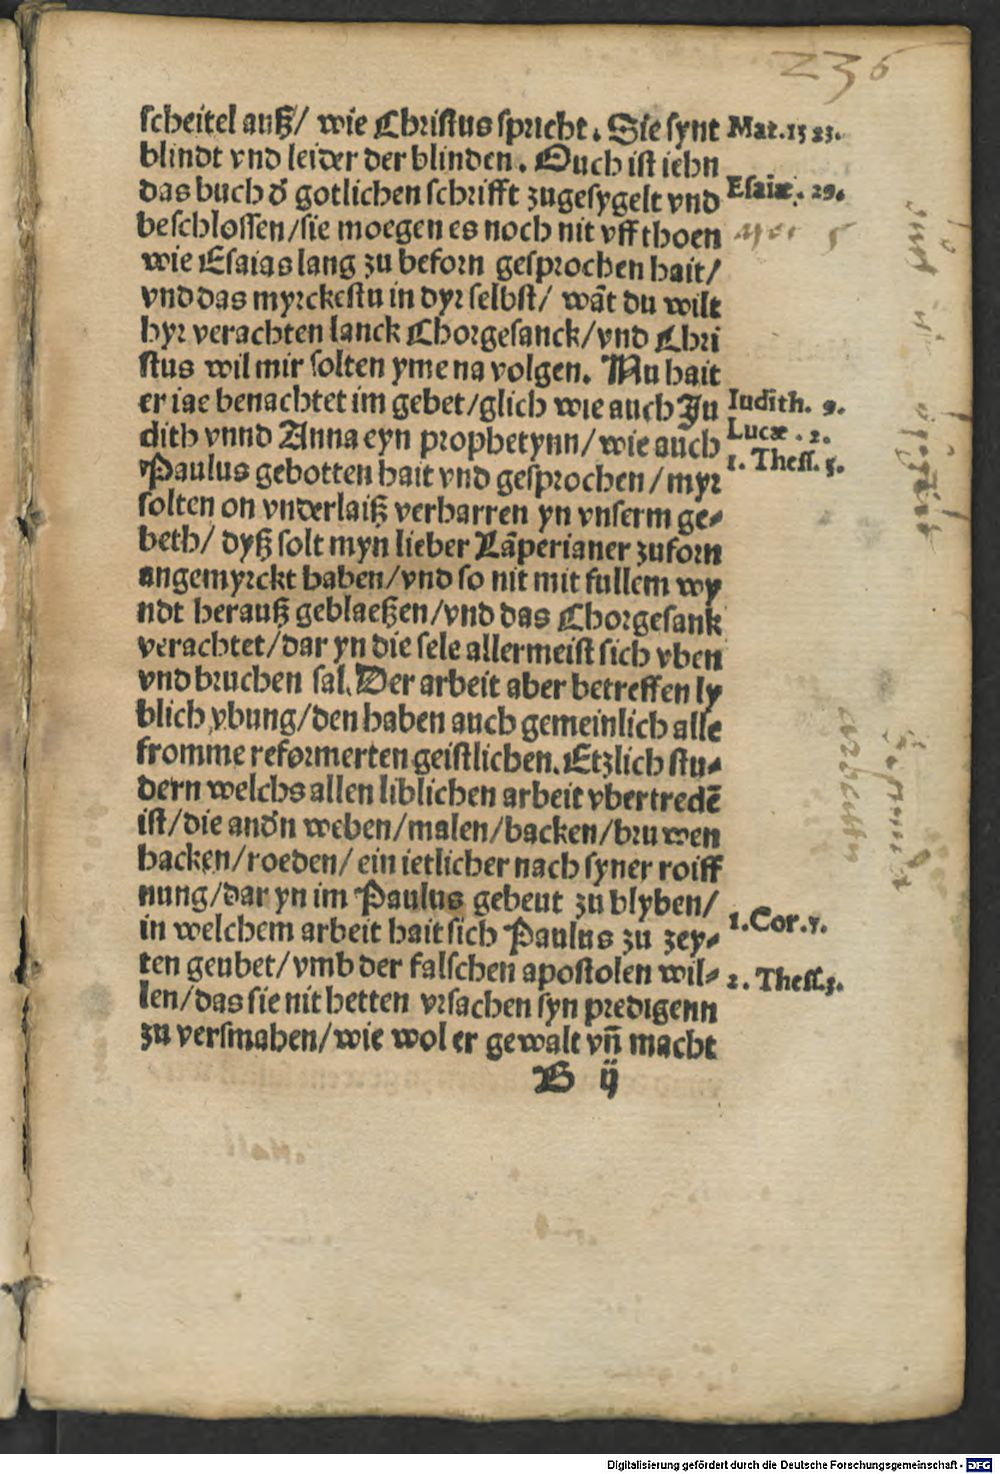 236
scheitel auß/ wie Christus spricht. Sie synt Mat. 15 23.
blindt vnd leider der blinden. Ouch ist iehn
das buch d̕ gotlichen schrifft zugesygelt vnd Esaiæ. 29.
beschlossen/sie moegen es noch nit vff thoen
wie Esaias lang zu beforn gesprochen hait/
vnd das myrckestu in dyr selbst/ wāt du wilt
hyr verachten lanck Chorgesanck/vnd Chri
stus wil mir solten yme na volgen. Nu hait
er iae benachtet im gebet/glich wie auch Ju Iudith. 9.
dith vnnd Anna eyn prophetynn/wie auch Lucæ. 2.
Paulus gebotten hait vnd gesprochen/myr 1. Thess. 5.
solten on vnderlaiß verharren yn vnserm ge-
beth/ dyß solt myn lieber Lāperianer zuforn
angemyrckt haben/vnd so nit mit fullem wy
ndt herauß geblaeßen/vnd das Chorgesank
verachtet/dar yn die sele allermeist sich vben
vnd bruchen sal. Der arbeit aber betreffen ly
blich ybung/den haben auch gemeinlich alle
fromme reformerten geistlichen. Etzlich stu-
dern welchs allen liblichen arbeit vbertredē
ist/die and̕n weben/malen/backen/bruwen
hacken/roeden/ ein ietlicher nach syner roiff
nung/dar yn im Paulus gebeut zu blyben/ 1. Cor. 7.
in welchem arbeit hait sich Paulus zu zey-
ten geubet/vmb der falschen apostolen wil- 2. Thess. 3.
len/das sie nit hetten vrsachen syn predigenn
zu versmahen/wie wol er gewalt vn̄ macht
B ij
Digitalisierung gefördert durch die Deutsche Forschungsgemeinschaft - DFG